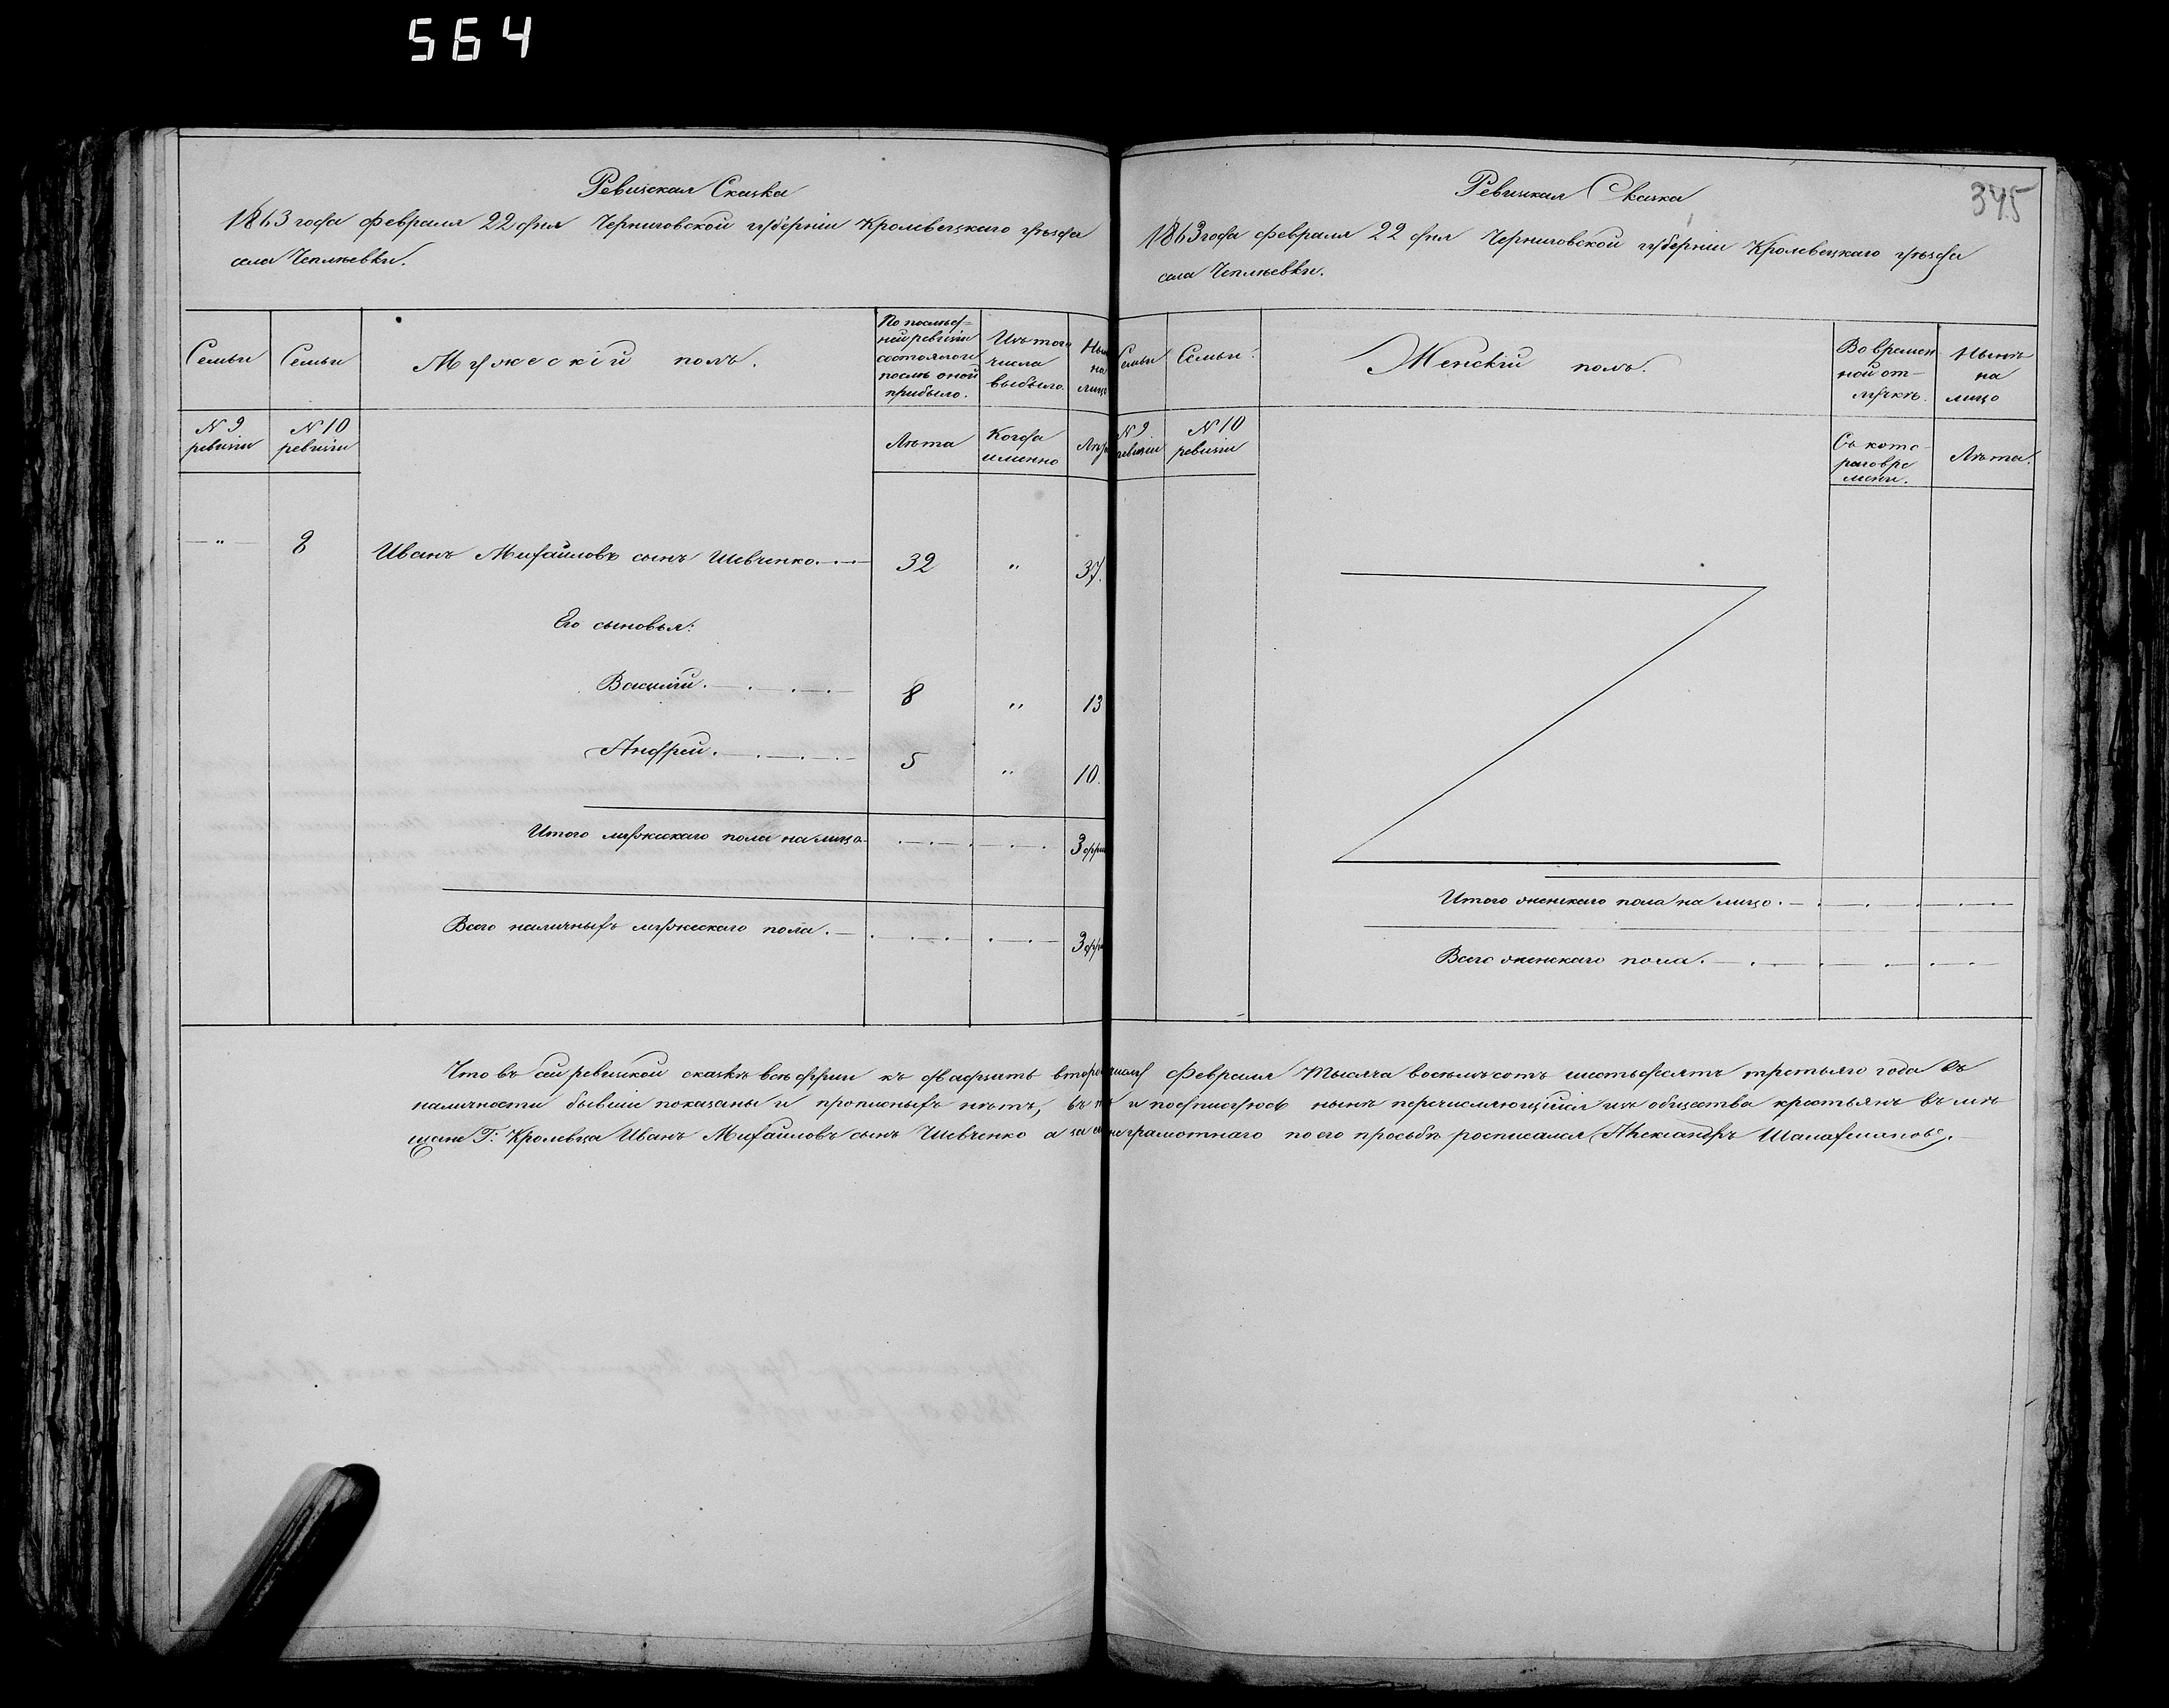 564
345
Ревизская Сказка
1863 года Февраля 22 дня Черниговской губерніи Кролевецкаго уѣзда
села Чепліевки.
Семьи
Семьи
Мужескій полъ.
По послѣд-
ней ревизіи
состояло и
послѣ оной
прибыло.
Изъ того
числа
выбыло.
Ны
на
лицо
№ 9
ревизіи
№ 10
ревизіи
Лѣта
Когда
именно
Лѣт
— " — 8 Иванъ Михайловъ сынъ Шевченко 32 " 37.
Его сыновья:
Василій 8 " 13
Андрей 5 " 10.
Итого мужескаго пола на лицо 3 души
Всего наличныхъ мужескаго пола 3 души
Ревизская Сказка
1863 года Февраля 22 дня Черниговской губерніи Кролевецкаго уѣзда
села Чепліевки.
Семьи
Семьи
Женскій полъ.
Во времен
ной от-
лучкѣ.
Нынѣ
на
лицо
№ 9
ревизіи
№ 10
ревизіи
Съ кото-
раго вре
мени.
Лѣта.
Итого женскаго пола на лицо.
Всего женскаго пола.
Что въ сей ревизской сказкѣ всѣ души къ двадцать второму числу Февраля тысяча восемьсотъ шестьдесятъ третьяго года въ
наличности бывшіе показаны и прописныхъ нѣтъ, въ и подписуюсь нынѣ перечисляющійся изъ общества крестьянъ въ мѣ
щане Г: Кролевца Иванъ Михайловъ сынъ Шевченко а за неграмотнаго по его прозьбѣ росписался Александръ